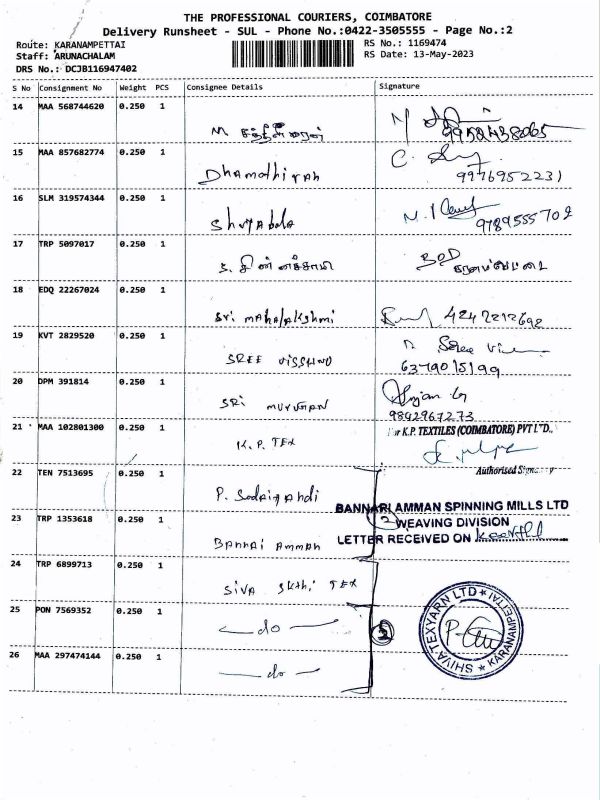 THE PROFESSIONAL COURIERS, COIMBATORE
Delivery Runsheet - SUL - Phone No.:0422-3505555 - Page No.:2
Route: KARANAMPETTAI
RS No.: 1169474
Staff: ARUNACHALAM
RS Date: 13-May-2023
DRS No.: DCJB116947402
S No Consignment No Weight PCS Consignee Details Signature
14 MAA 568744620 0.250 1
M
15 MAA 857682774 0.250 1
Dhamothiran
9976952231
16 SLM 319574344 0.250 1
9789555702
17 TRP 5097017 0.250 1
ந. சின்னச்சாமி
18 EDQ 22267024 0.250 1
Sri mahalakshmi
4242212692
19 KVT 2829520 0.250 1
SREE VISSHNU
6379015199
20 DPM 391814 0.250 1
SRI MURUGAN
9842967273
21 MAA 102801300 0.250 1
K.P. TEX
For K.P. TEXTILES (COIMBATORE) PVT LTD.,
Authorised Signatory
22 TEN 7513695 0.250 1
BANNARI AMMAN SPINNING MILLS LTD
23 TRP 1353618 0.250 1
Bannai Amman
2 WEAVING DIVISION
LETTER RECEIVED ON
24 TRP 6899713 0.250 1
Siva Skthi TEX
25 PON 7569352 0.250 1
do
3
SHIVA TEXYARN LTD
KARANAMPETTAI
26 MAA 297474144 0.250 1
do